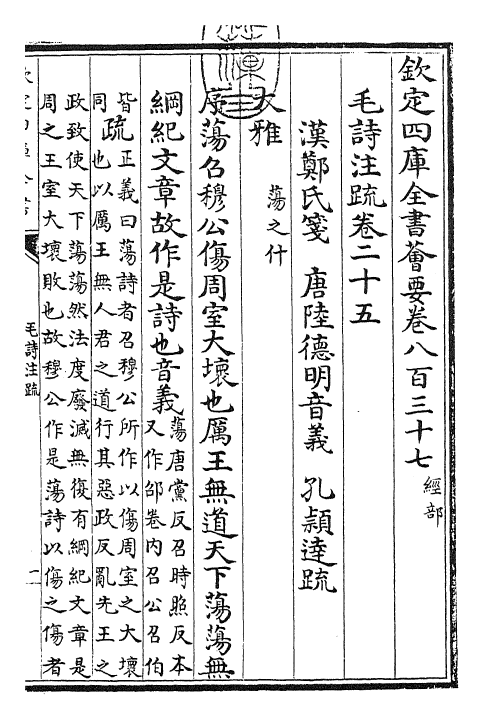 欽定四庫全書薈要卷八百三十七
經部
毛詩注疏卷二十五
漢鄭氏箋　唐陸德明音義　孔穎達疏
大雅
蕩之什
序蕩召穆公傷周室大壞也厲王無道天下蕩蕩無
綱紀文章故作是詩也音義
蕩唐黨反召時照反本
又作邵卷内召公召伯
皆
同
疏
正義曰蕩詩者召穆公所作以傷周室之大壞
也以厲王無人君之道行其惡政反亂先王之
政致使天下蕩蕩然法度廢滅無復有綱紀文章是
周之王室大壞敗也故穆公作是蕩詩以傷之傷者
毛詩注疏